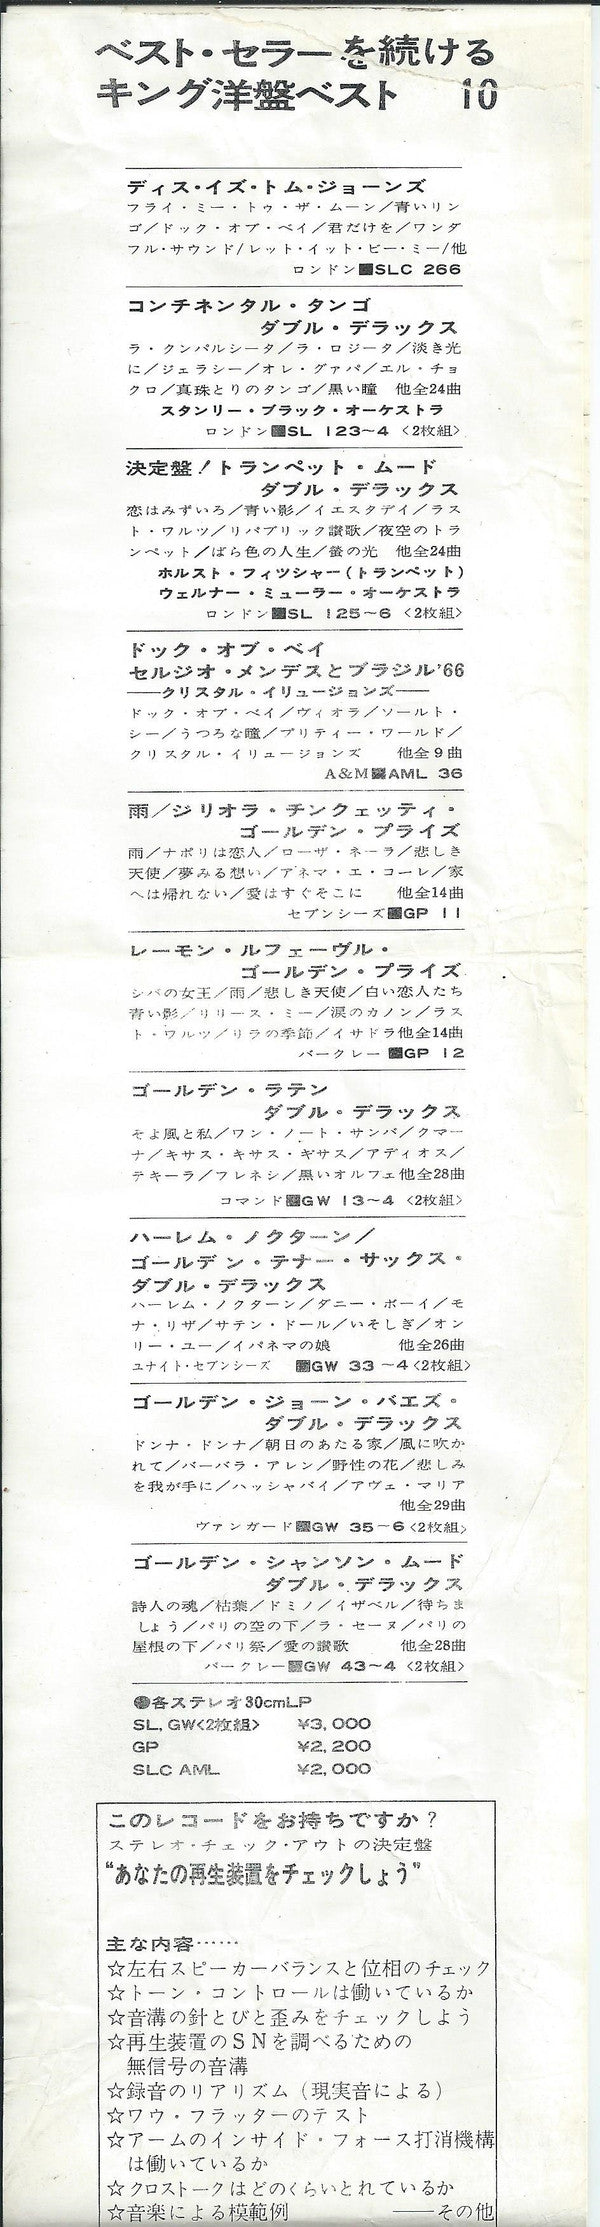 ベスト・セラーを続ける
キング洋盤ベスト 10
ディス・イズ・トム・ジョーンズ
フライ・ミー・トゥ・ザ・ムーン/青いリン
ゴ/ドック・オブ・ベイ/君だけを/ワンダ
フル・サウンド/レット・イット・ビー・ミー/他
ロンドン■SLC 266
コンチネンタル・タンゴ
ダブル・デラックス
ラ・クンパルシータ/ラ・ロジータ/淡き光
に/ジェラシー/オレ・グァパ/エル・チョ
クロ/真珠とりのタンゴ/黒い瞳 他全24曲
スタンリー・ブラック・オーケストラ
ロンドン■SL 123~4 <2枚組>
決定盤!トランペット・ムード
ダブル・デラックス
恋はみずいろ/青い影/イエスタデイ/ラス
ト・ワルツ/リパブリック讃歌/夜空のトラ
ンペット/ばら色の人生/螢の光 他全24曲
ホルスト・フィツシャー(トランペット)
ウェルナー・ミューラー・オーケストラ
ロンドン■SL 125~6 <2枚組>
ドック・オブ・ベイ
セルジオ・メンデスとブラジル'66
──クリスタル・イリュージョンズ──
ドック・オブ・ベイ/ヴィオラ/ソールト・
シー/うつろな瞳/プリティー・ワールド/
クリスタル・イリュージョンズ 他全9曲
A&M■AML 36
雨/ジリオラ・チンクェッティ・
ゴールデン・プライズ
雨/ナポリは恋人/ローザ・ネーラ/悲しき
天使/夢みる想い/アネマ・エ・コーレ/家
へは帰れない/愛はすぐそこに 他全14曲
セブンシーズ■GP 11
レーモン・ルフェーヴル・
ゴールデン・プライズ
シバの女王/雨/悲しき天使/白い恋人たち
青い影/リリース・ミー/涙のカノン/ラス
ト・ワルツ/リラの季節/イサドラ他全14曲
バークレー ■GP 12
ゴールデン・ラテン
ダブル・デラックス
そよ風と私/ワン・ノート・サンバ/クマー
ナ/キサス・キサス・キサス/アディオス/
テキーラ/フレネシ/黒いオルフェ他全28曲
コマンド■GW 13~4 <2枚組>
ハーレム・ノクターン/
ゴールデン・テナー・サックス・
ダブル・デラックス
ハーレム・ノクターン/ダニー・ボーイ/モ
ナ・リザ/サテン・ドール/いそしぎ/オン
リー・ユー/イパネマの娘 他全26曲
ユナイト・セブンシーズ ■GW 33~4<2枚組>
ゴールデン・ジョーン・バエズ・
ダブル・デラックス
ドンナ・ドンナ/朝日のあたる家/風に吹か
れて/バーバラ・アレン/野性の花/悲しみ
を我が手に/ハッシャバイ/アヴェ・マリア
他全29曲
ヴァンガード■GW 35~6<2枚組>
ゴールデン・シャンソン・ムード
ダブル・デラックス
詩人の魂/枯葉/ドミノ/イザベル/待ちま
しょう/パリの空の下/ラ・セーヌ/パリの
屋根の下/パリ祭/愛の讃歌 他全28曲
バークレー■GW 43~4 <2枚組>
●各ステレオ30cmLP
SL, GW<2枚組> ¥3,000
GP ¥2,200
SLC AML ¥2,000
このレコードをお持ちですか?
ステレオ・チェック・アウトの決定盤
“あなたの再生装置をチェックしょう”
主な内容……
☆左右スピーカーバランスと位相のチェック
☆トーン・コントロールは働いているか
☆音溝の針とびと歪みをチェックしよう
☆再生装置のSNを調べるための
無信号の音溝
☆録音のリアリズム(現実音による)
☆ワウ・フラッターのテスト
☆アームのインサイド・フォース打消機構
は働いているか
☆クロストークはどのくらいとれているか
☆音楽による模範例 ──その他